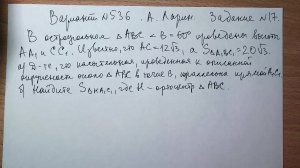 Вариант №536. А. Ларин. Задание №17.
В остроугольном △ABC ∠B=60° проведены высоты
AA₁ и CC₁. Известно, что AC=12√3, а S =20√3.
а) Д-те, что касательная, проведенная к описанной
окружности около △ABC в точке B, параллельна прямой A₁C₁
б) Найдите S , где H - ортоцентр △ABC.